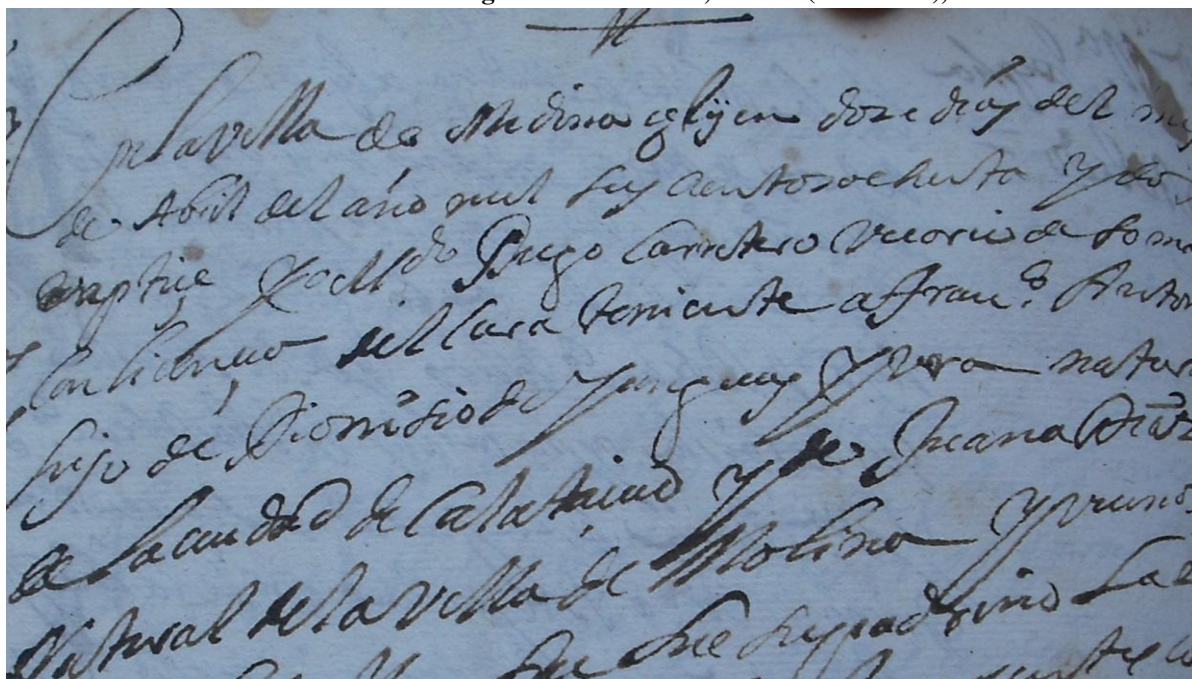 En la Villa de Medina zeli en doze dias del mes
de Abril del año mil seys cientos ochenta y dos
Baptize yo el Ldo Diego Carretero Vecino de
Con licencia del Cura teniente a Franco Anton
hijo de Dionisio de Yanguas y vera natur
de la ciudad de Calataiud y de Juana Diaz
Natural de la Villa de Molina y
fue su padrino